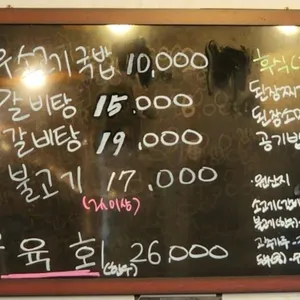 소고기국밥 10,000
갈비탕 15,000
갈비탕 19,000
불고기 17,000
(2인이상)
육회 26,000
후식
된장찌
된장소
공기밥
원산지
소고기